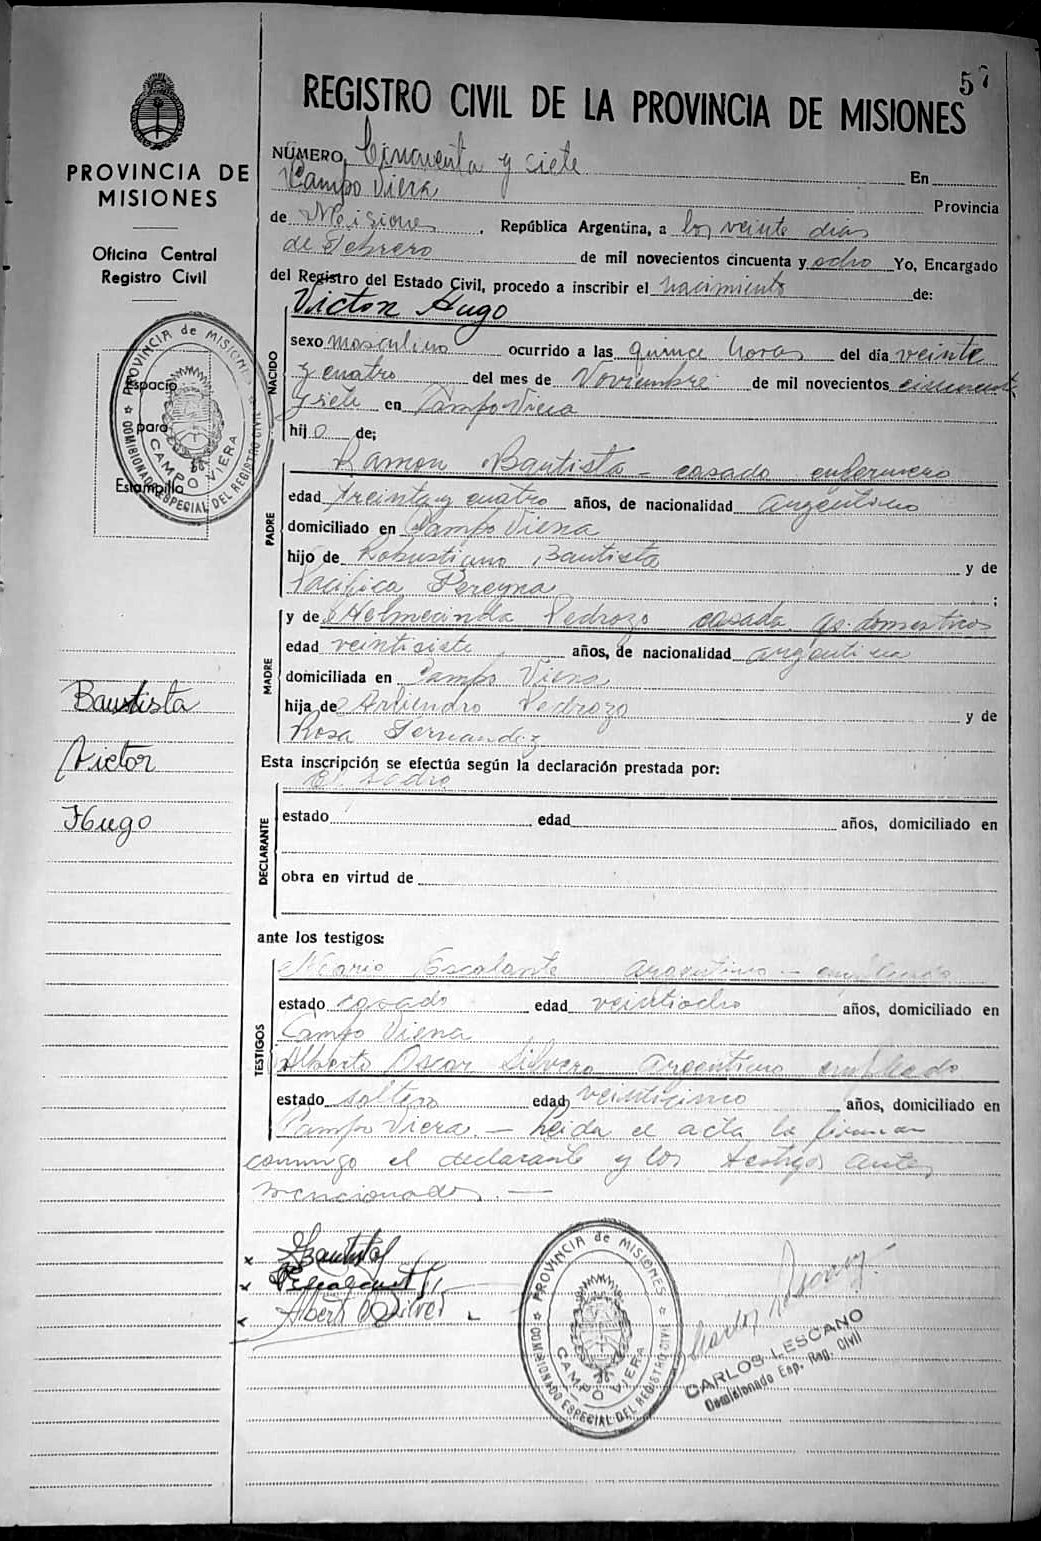 57
REGISTRO CIVIL DE LA PROVINCIA DE MISIONES
PROVINCIA DE
MISIONES
Oficina Central
Registro Civil
PROVINCIA de MISIONES
COMISIONADO ESPECIAL DEL REGISTRO CIVIL
CAMPO VIERA
Espacio
para
Estampilla
Bautista
Victor
Hugo
NÚMERO Cincuenta y siete En
Campo Viera Provincia
de Misiones, República Argentina, a los veinte dias
de Febrero de mil novecientos cincuenta y ocho Yo, Encargado
del Registro del Estado Civil, procedo a inscribir el nacimiento de:
NACIDO
Victor Hugo
sexo masculino ocurrido a las quince horas del día veinte
y cuatro del mes de Noviembre de mil novecientos cincuenta
y siete en Campo Viera
hijo de;
PADRE
Ramon Bautista - casado enfermero
edad treinta y cuatro años, de nacionalidad argentino
domiciliado en Campo Viera
hijo de Robustiano Bautista y de
Pacifica Pereyra ;
MADRE
y de Helmecinda Pedrozo casada q. domesticos
edad veintisiete años, de nacionalidad argentina
domiciliada en Campo Viera
hija de Pedrozo y de
Rosa Fernandez
Esta inscripción se efectúa según la declaración prestada por:
DECLARANTE
El padre
estado edad años, domiciliado en
obra en virtud de
ante los testigos:
TESTIGOS
Mario Escalante argentino - empleado
estado casado edad veintiocho años, domiciliado en
Campo Viera
Alberto Oscar Silvero argentino empleado
estado soltero edad veinticinco años, domiciliado en
Campo Viera. - Leida el acta la firman
conmigo el declarante y los testigos antes
mencionados. -
x Bautista
x Escalante
x Albert O Silver
PROVINCIA de MISIONES
COMISIONADO ESPECIAL DEL REGISTRO CIVIL
CAMPO VIERA
Carlos
CARLOS LESCANO
Comisionado Esp. Reg. Civil